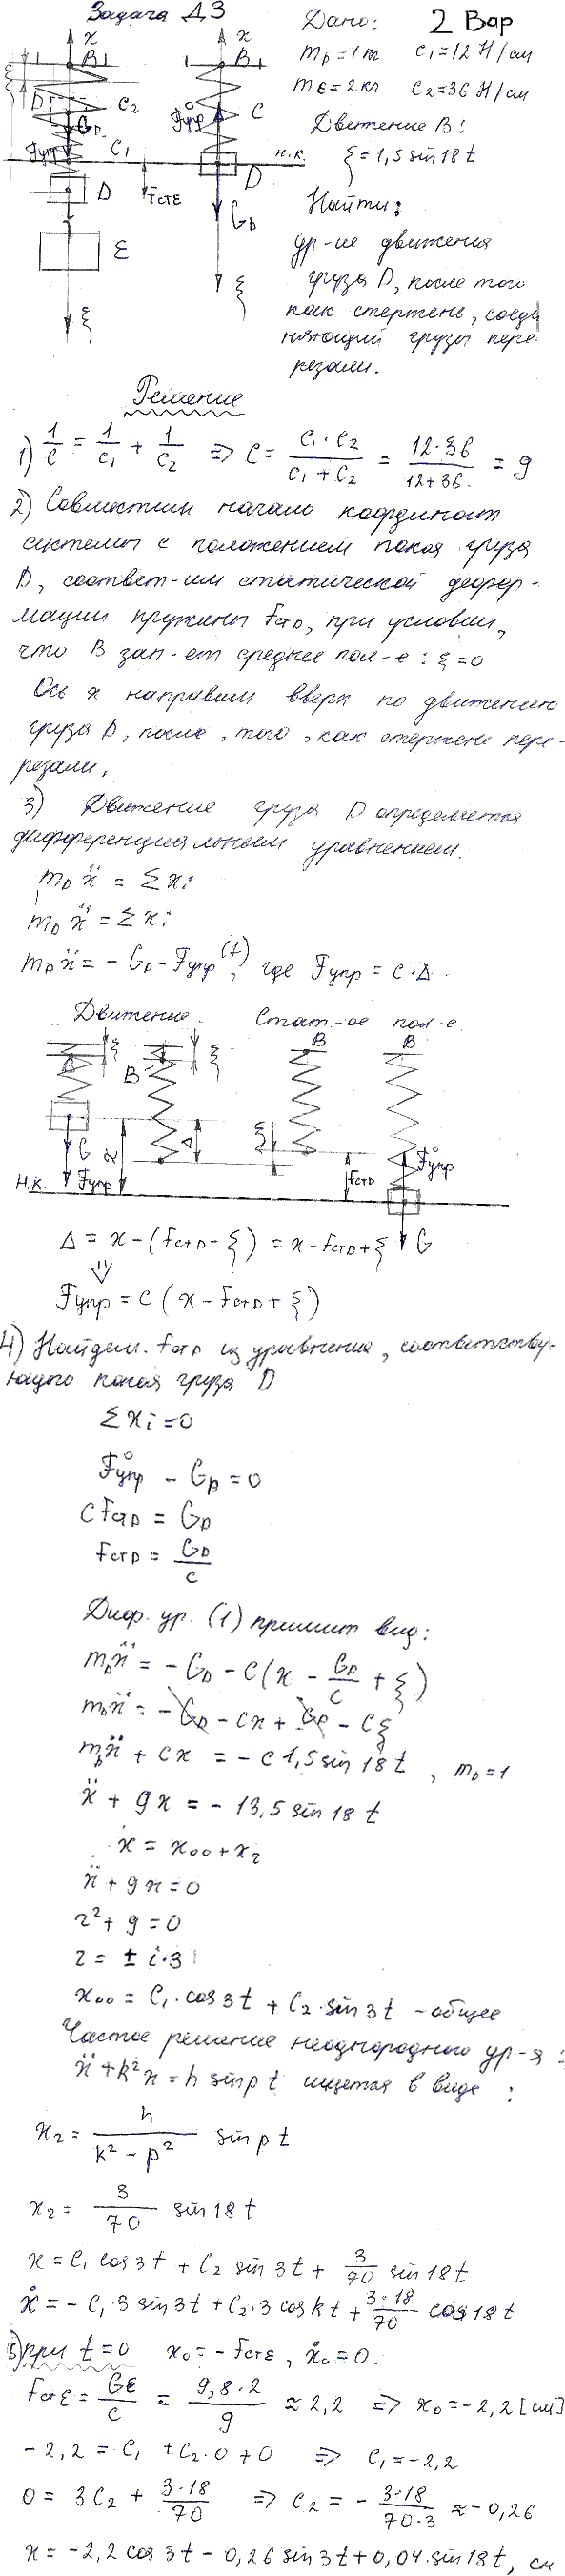 Задача Д3
Дано: 2 Вар
m_D = 1 кг  C₁ = 12 Н/см
m_E = 2 кг  C₂ = 36 Н/см
Движение В:
ξ = 1,5 sin 18 t
Найти:
ур-ие движения
груза D, после того
как стержень, соеди
няющий грузы пере
резали.
x
B
ξ
D
C₂
G_D
Fупр
C₁
D
E
ξ
FстE
x
B
F̊упр
C
н.к.
D
G_D
ξ
Решение
1) 1/C = 1/C₁ + 1/C₂ => C = C₁·C₂/(C₁+C₂) = 12·36/(12+36) = 9
2) Совместим начало координат
системы с положением покоя груза
D, соответ-им статической дефор-
мации пружины FстD, при условии,
что В зан-ет среднее пол-е: ξ=0
Ось x направим вверх по движению
груза D, после, того, как стержень пере-
резали,
3) Движение груза D определяется
дифференциальным уравнением.
m_D ẍ = Σ xᵢ
m_D ẍ = Σ xᵢ
m_D ẍ = - G_D - Fупр (1), где Fупр = C·Δ
Движение. Стат.-ое пол-е.
B
ξ
B
ξ
B
B
G
x
Δ
ξ
FстD
F̊упр
н.к.
Fупр
G
Δ = x - (FстD - ξ) = x - FстD + ξ
⇓
Fупр = C (x - FстD + ξ)
4) Найдем FстD из уравнения, соответству-
ющего покоя груза D
Σ Xi = 0
F̊упр - G_D = 0
C FстD = G_D
FстD = G_D/C
Диф. ур. (1) примит вид:
m_D ẍ = - G_D - C(x - G_D/C + ξ)
m_D ẍ = - G_D - Cx + G_D - Cξ
m_D ẍ + Cx = - C 1,5 sin 18 t, m_D = 1
ẍ + 9x = - 13,5 sin 18 t
x = x₀₀ + x₂
ẍ + 9x = 0
z² + 9 = 0
z = ± i·3
x₀₀ = C₁·cos 3t + C₂·sin 3t - общее
Частое решение неоднородного ур-я:
ẍ + k²x = h sin p t ищется в виде:
x₂ = h/(k² - p²) · sin p t
x₂ = 3/70 sin 18 t
x = C₁ cos 3t + C₂ sin 3t + 3/70 sin 18 t
ẋ = - C₁·3 sin 3t + C₂·3 cos kt + 3·18/70 cos 18 t
5) при t=0 x₀ = - FстE, ẋ₀ = 0.
FстE = GE/C = 9,8·2/9 ≈ 2,2 => x₀ = -2,2 [см]
-2,2 = C₁ + C₂·0 + 0 => C₁ = -2,2
0 = 3C₂ + 3·18/70 => C₂ = - 3·18/70·3 ≈ -0,26
x = -2,2 cos 3t - 0,26 sin 3t + 0,04 sin 18t, см